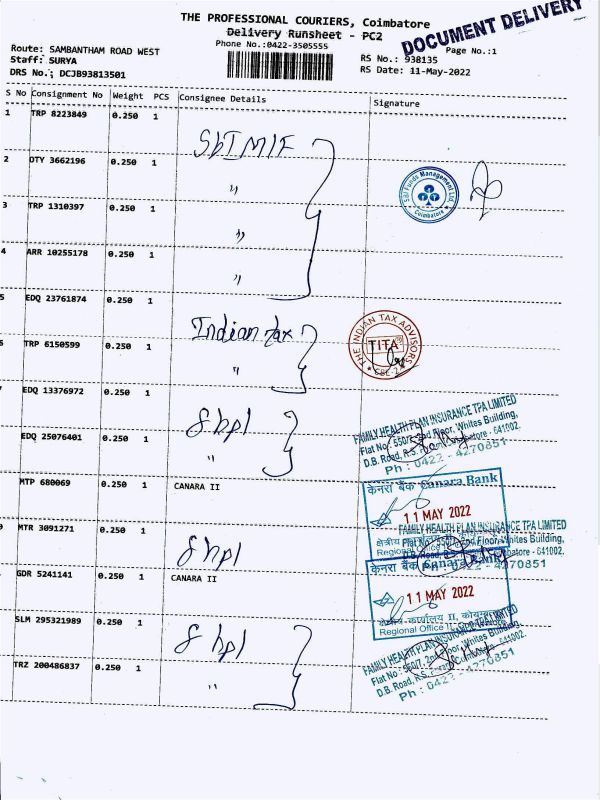 THE PROFESSIONAL COURIERS, Coimbatore
Delivery Runsheet - PC2
DOCUMENT DELIVERY
Phone No.:0422-3505555
Page No.:1
Route: SAMBANTHAM ROAD WEST
RS No.: 938135
Staff: SURYA
RS Date: 11-May-2022
DRS No.: DCJB93813501
S No Consignment No Weight PCS Consignee Details Signature
1 TRP 8223849 0.250 1 SbIMIF
2 OTY 3662196 0.250 1 "
Sbi Funds Management Ltd.
Coimbatore
3 TRP 1310397 0.250 1 "
4 ARR 10255178 0.250 1 "
5 EDQ 23761874 0.250 1 Indian tax
THE INDIAN TAX ADVISORS
TITA
CBE-2
6 TRP 6150599 0.250 1 "
7 EDQ 13376972 0.250 1 fhpl
FAMILY HEALTH PLAN INSURANCE TPA LIMITED
Flat No: 550/7, 2nd Floor, Whites Building,
D.B. Road, R.S. Coimbatore - 641002.
Ph : 0422 - 4270851
EDQ 25076401 0.250 1 "
MTP 680069 0.250 1 CANARA II
केनरा बैंक Canara Bank
11 MAY 2022
क्षेत्रीय
Regional Office
MTR 3091271 0.250 1 fhpl
FAMILY HEALTH PLAN INSURANCE TPA LIMITED
Floor, Whites Building,
Coimbatore - 641002.
4270851
GDR 5241141 0.250 1 CANARA II
केनरा बैंक Canara Bank
11 MAY 2022
क्षेत्रीय कार्यालय II, कोयम्बत्तूर
Regional Office II, Coimbatore
SLM 295321989 0.250 1 fhpl
FAMILY HEALTH PLAN INSURANCE TPA LIMITED
Flat No : 550/7, 2nd Floor, Whites Building,
D.B. Road, R.S. Coimbatore - 641002.
Ph : 0422 - 4270851
TRZ 200486837 0.250 1 "